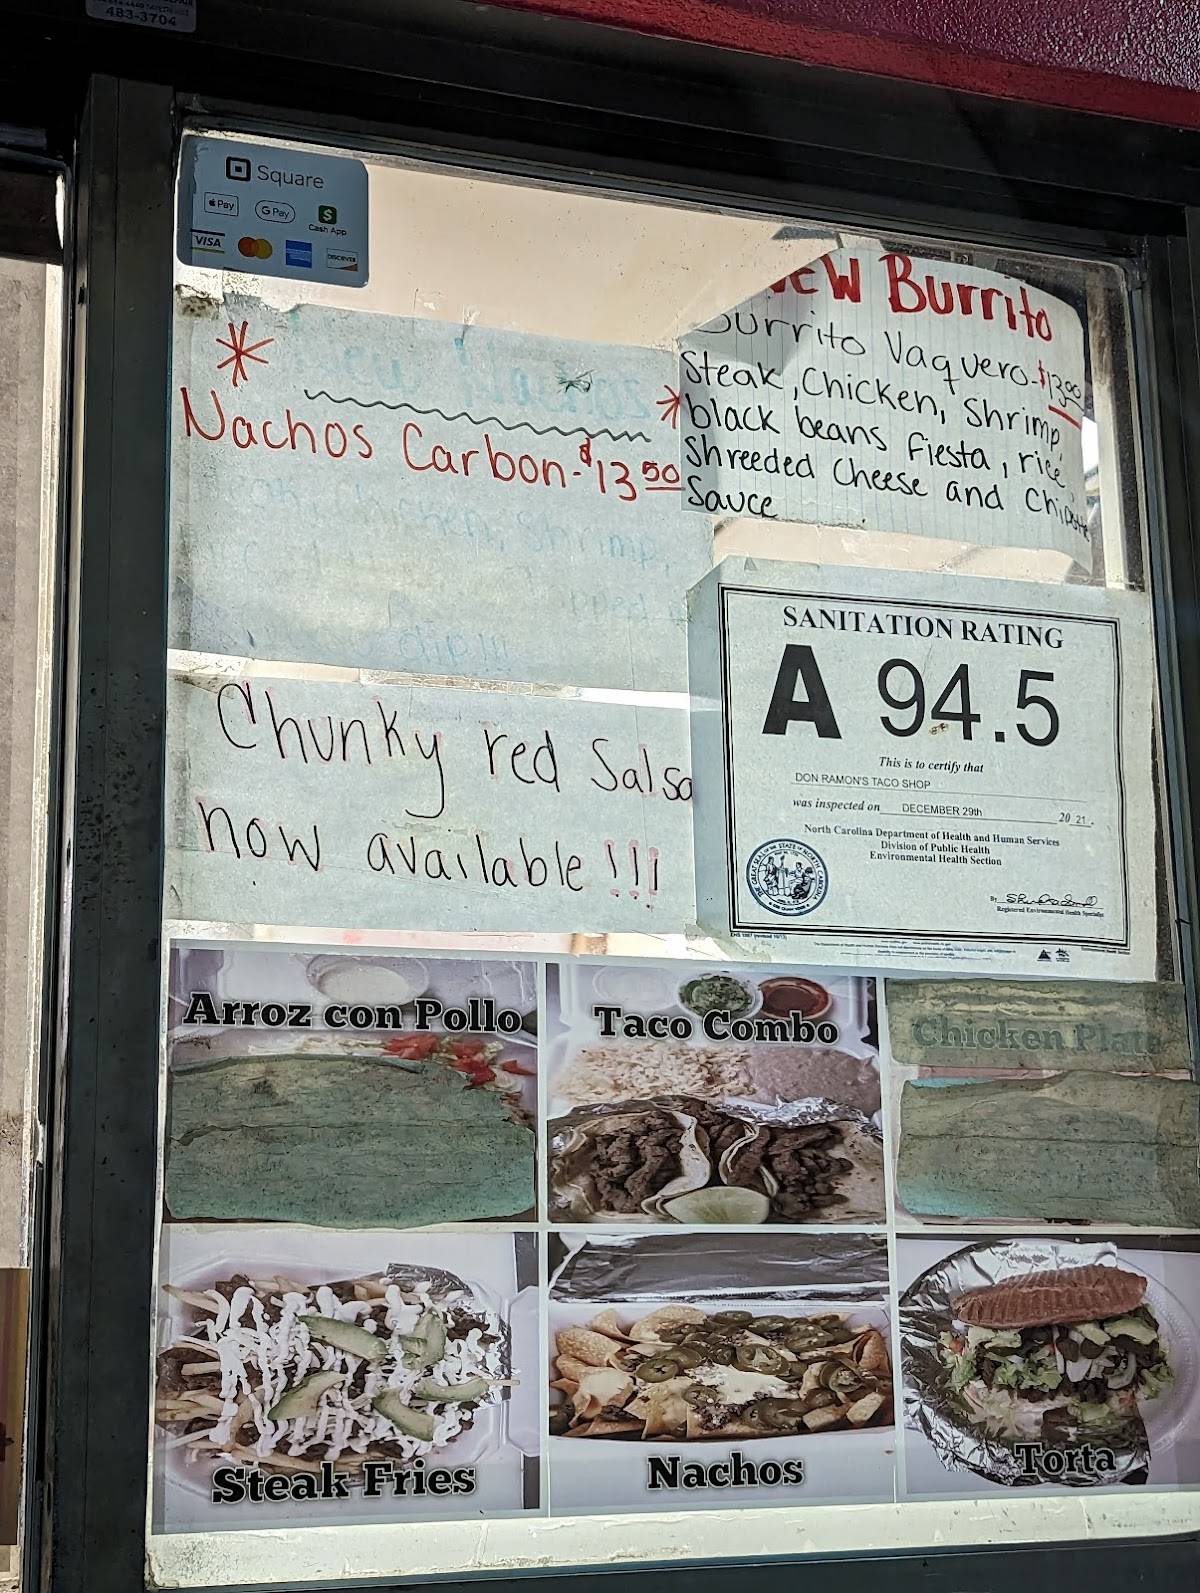 483-3704
Square
Pay
G Pay
$
Cash App
VISA
DISCOVER
New Burrito
Burrito Vaquero-$13.00
Steak, Chicken, Shrimp,
black beans fiesta, rice,
Shreeded Cheese and Chipotle
Sauce
Nachos Carbon-$13.50
Chunky red Salsa
now available!!!
SANITATION RATING
A 94.5
This is to certify that
DON RAMON'S TACO SHOP
was inspected on DECEMBER 29th 20 21.
North Carolina Department of Health and Human Services
Division of Public Health
Environmental Health Section
By
Registered Environmental Health Specialist
Arroz con Pollo
Taco Combo
Chicken Plate
Steak Fries
Nachos
Torta